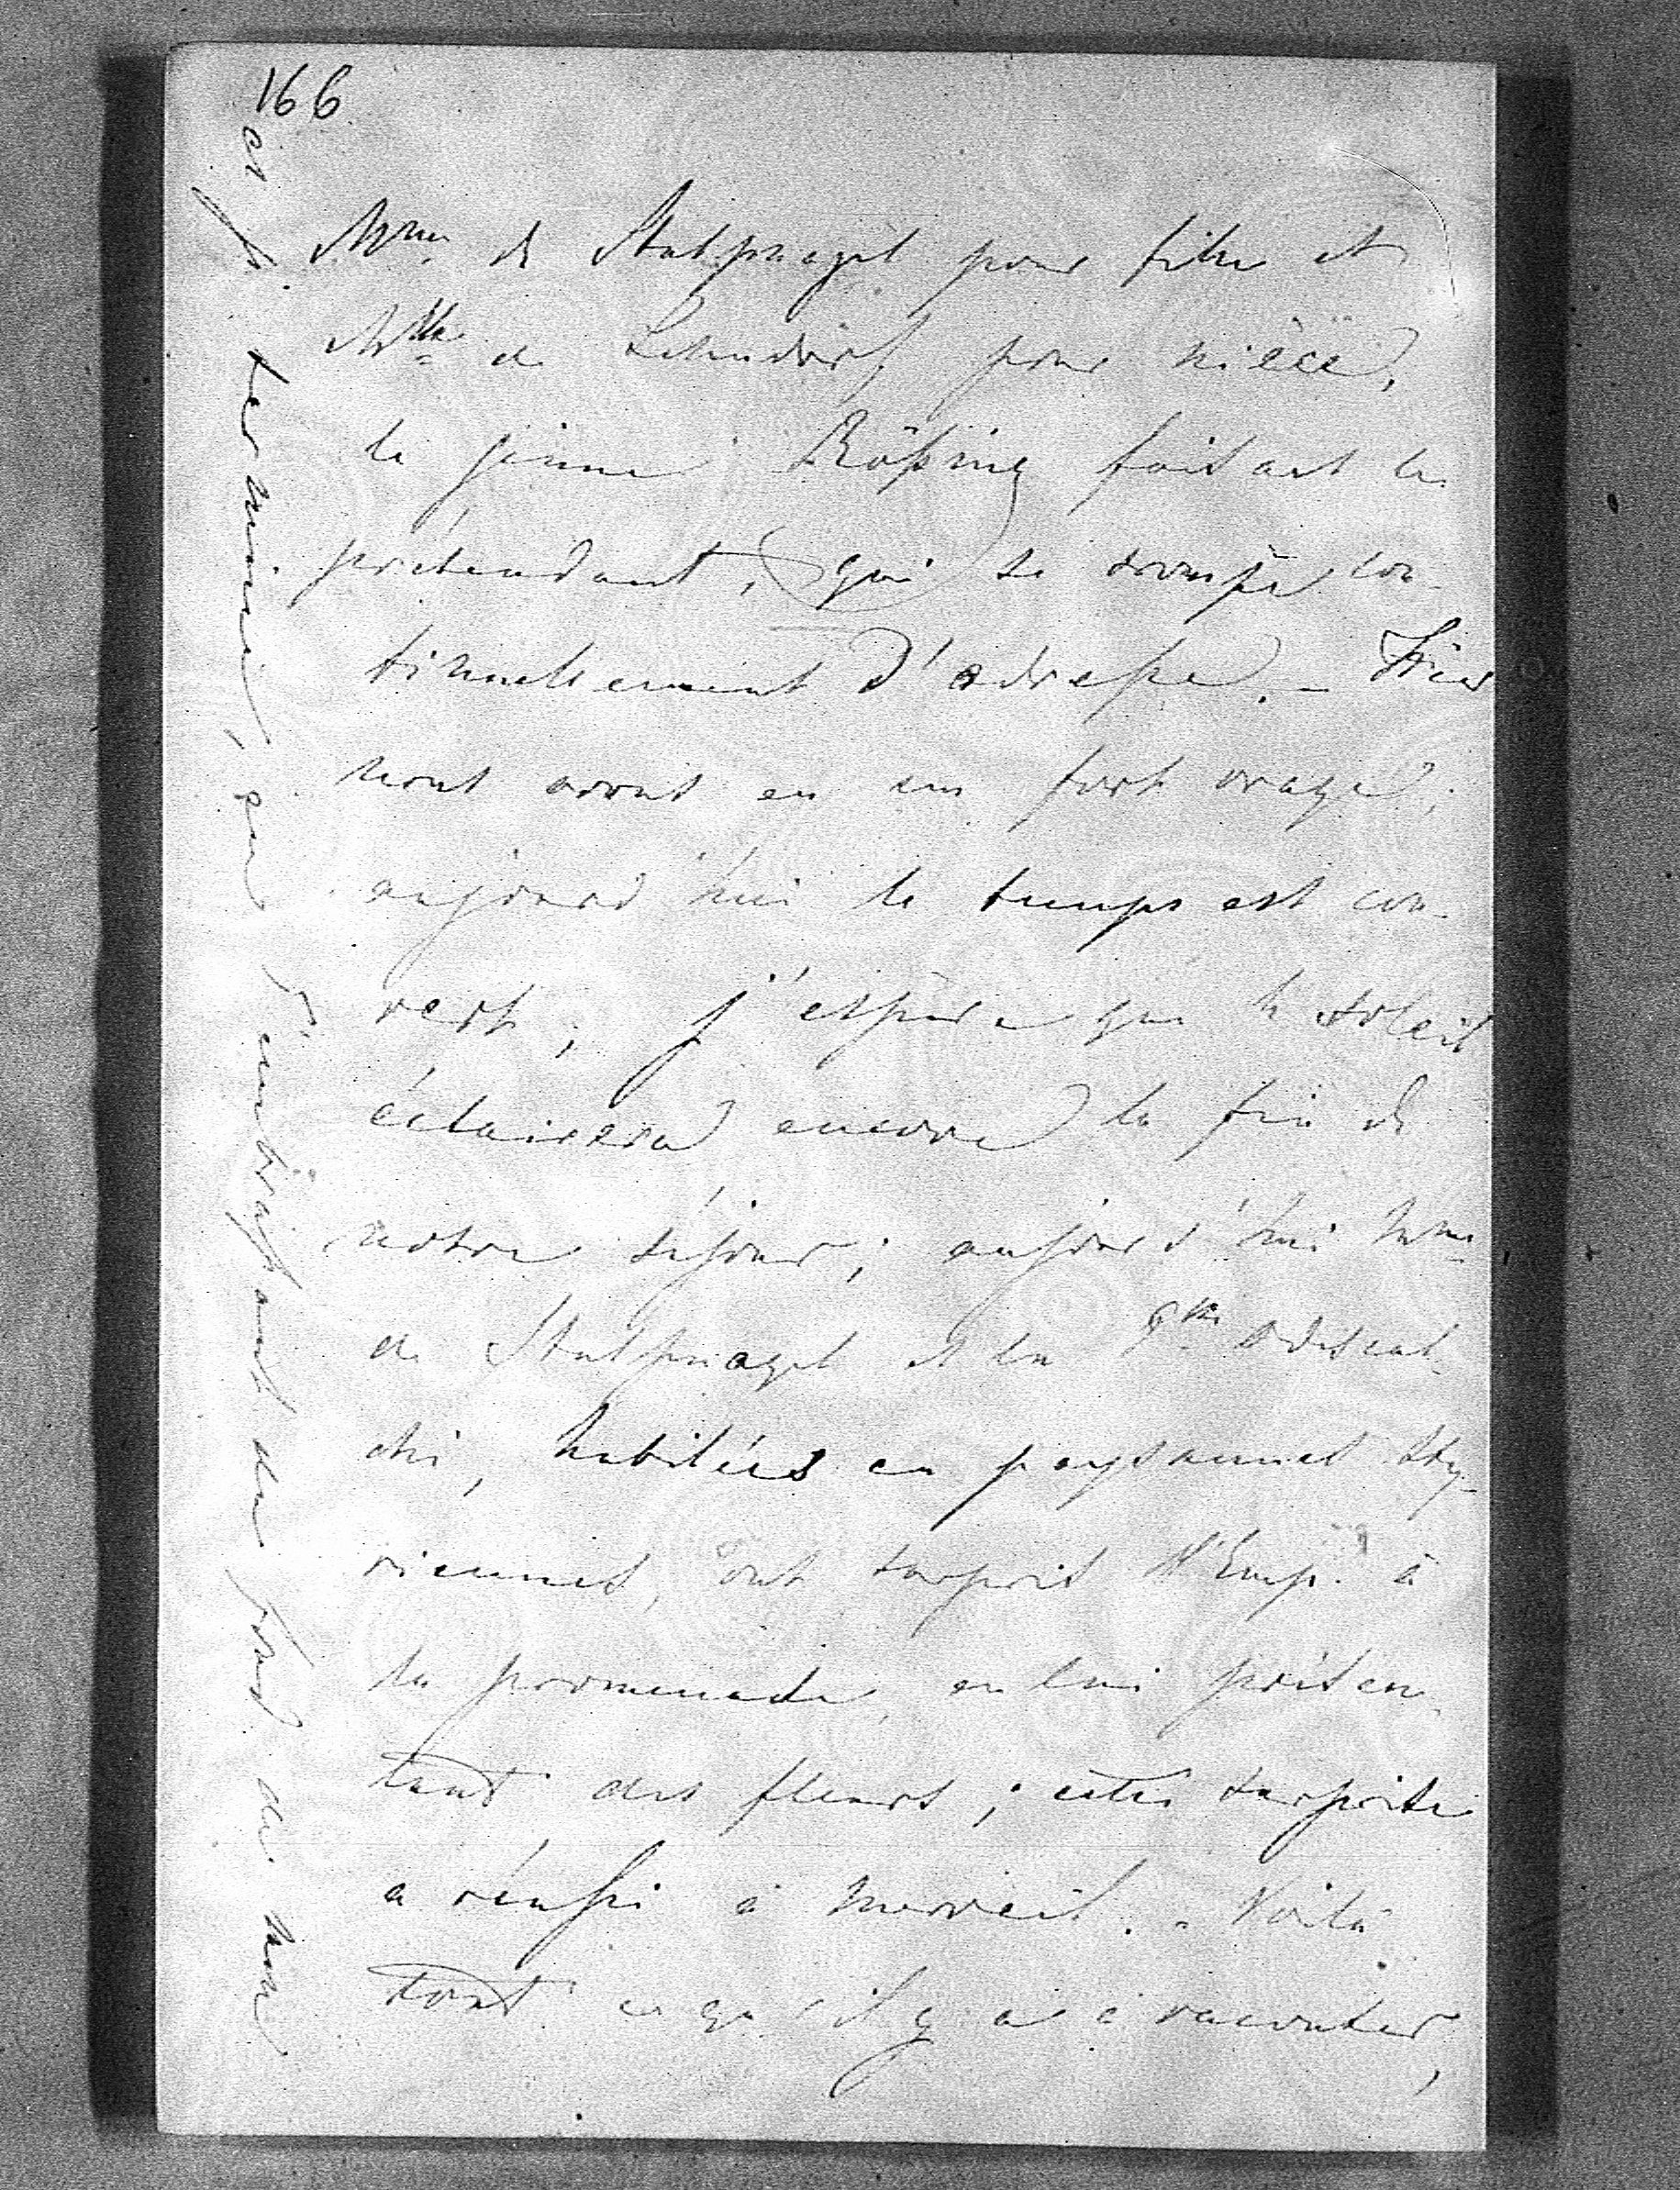 166
Mme de Stulpnagel pour fille et
Mlle de Lehndorf pour nièce,
le jeune Rössing faisant le
prétendant, qui se trompe con-
tinuellement d'adresse. – Hier
nous avons eu un fort orage;
aujourd'hui le temps est cou-
vert; j'espère que le soleil
éclairera encore la fin de
notre séjour; aujourd'hui Mme
de Stulpnagel et la Odescal-
chi, habilées en paysannes sty-
riennes, ont surpris l'Emp. à
la promenade, en lui présen
tant des fleurs; cette surprise
a réussi à merveil. – Voilà
tout ce qu'il y a à raconter,
et je termine, en t'embrassant du fond de mon